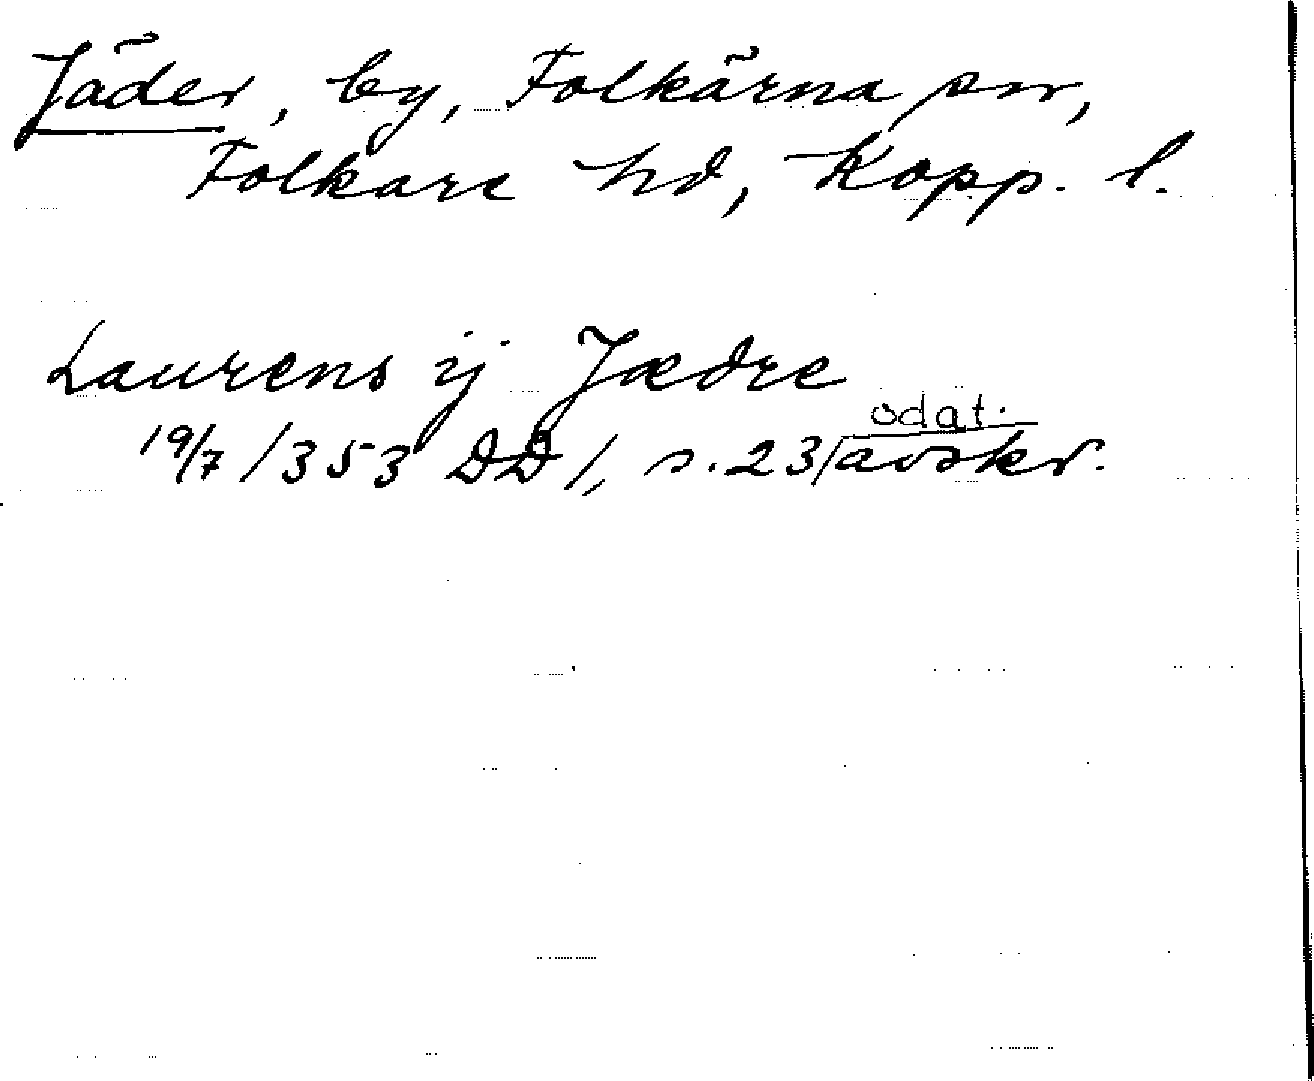 Jäder, by, Folkärna sn,
Folkare hd, Kopp. l.
Laurens ij Jædre
odat.
19/7 1353 DD 1, s. 23/avskr.